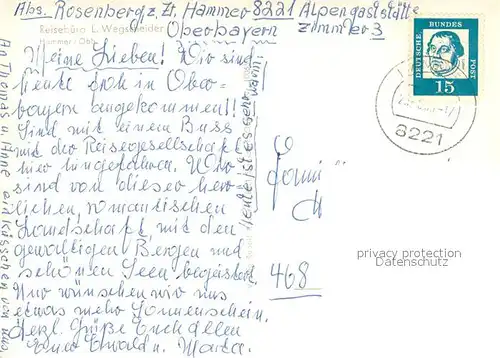 Abs. Rosenberg z. Zt. Hammer 8221 Alpengaststätte
Oberbayern Zimmer 3
Reisebüro L. Wegscheider
Hammer - Obb.
Meine Lieben! Wir sind
heute froh in Ober-
bayern angekommen!!
Sind mit einem Buss
mit der Reisegesellschaft
hier hingefahren. Wir
sind von dieser herr-
lichen, romantischen
Landschaft, mit den
gewaltigen Bergen und
schönen Seen begeistert.
Nur wünschen wir uns
etwas mehr Sonnenschein.
Herzl. Grüße Euch allen
Euer Ewald u. Marta.
An Thomas u. Anne ein Küsschen von uns.
Heute ist es sehr
warm.
DEUTSCHE BUNDES POST
15
8221
Familie
468
privacy protection
Datenschutz